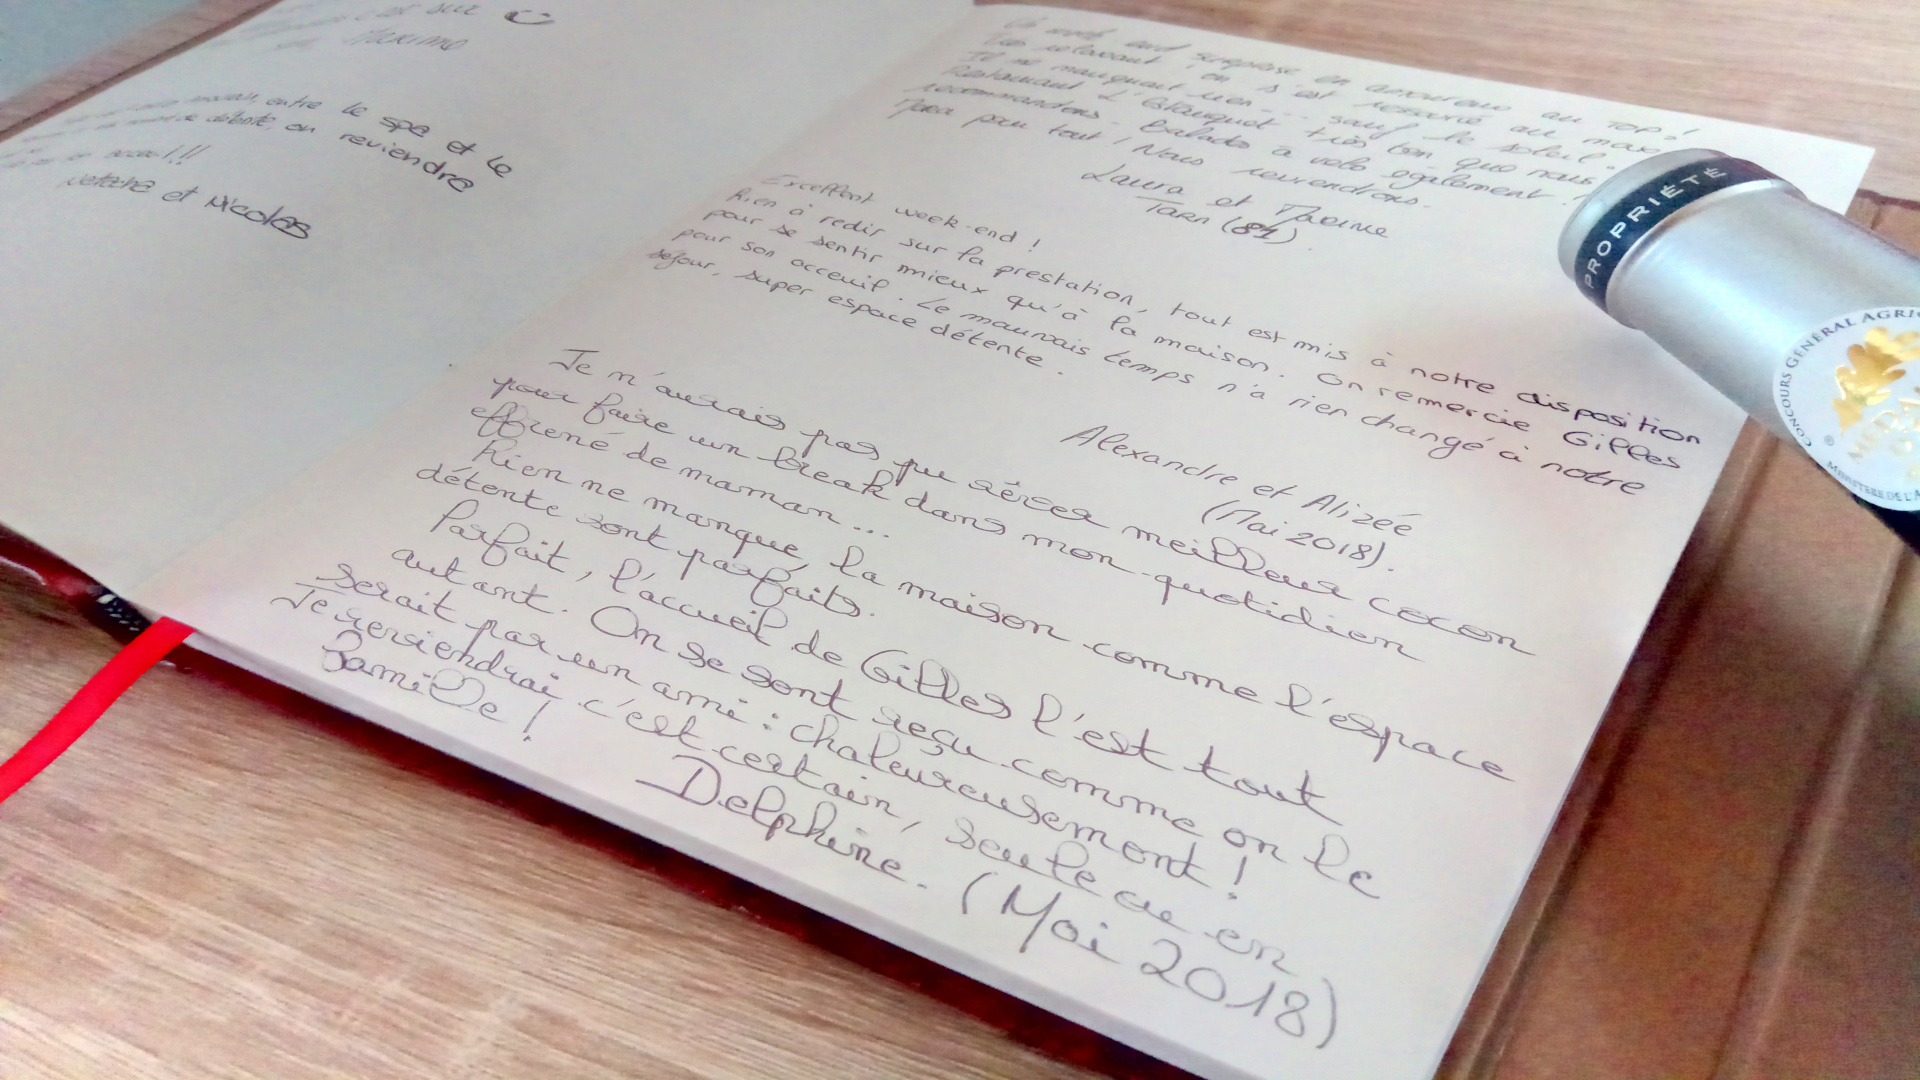 c'est sur
Maxime
moment, entre le spa et le
de détente, on reviendra
accueil!!
Natacha et Nicolas
Ce week end surprise en amoureux au TOP!
Très relaxant, on s'est ressourcé au max.
Il ne manquait rien... sauf le soleil.
Restaurant L'Estanquet très bon que nous
recommandons. Balades à vélo également!
Merci pour tout! Nous reviendrons.
Laura et Maxime
TARN (81).
Excellent week-end!
Rien à redir sur la prestation, tout est mis à notre disposition
pour se sentir mieux qu'à la maison. On remercie Gilles
pour son acceuil. Le mauvais temps n'a rien changé à notre
séjour, super espace détente.
Alexandre et Alizée
(Mai 2018).
Je n'aurais pas pu rêver meilleur cocon
pour faire un break dans mon quotidien
effréné de maman...
Rien ne manque, la maison comme l'espace
détente sont parfaits.
Parfait, l'accueil de Gilles l'est tout
autant. On se sont reçu comme on le
serait par un ami : chaleureusement!
Je reviendrai c'est certain, seule ou en
famille!
Delphine.
(Mai 2018)
PROPRIÉTÉ
CONCOURS GÉNÉRAL AGRI
MINISTÈRE DE L'A